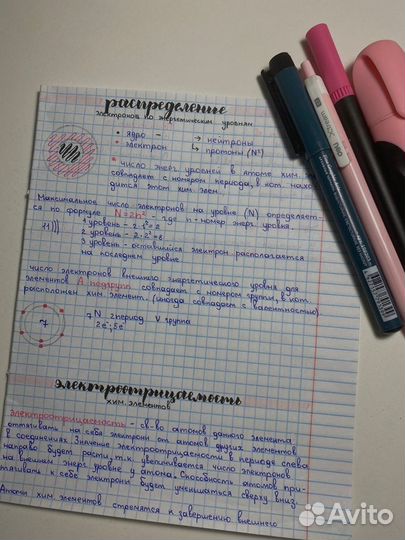 распределение
электронов по энергетическим уровням
• ядро – → нейтроны
• электрон ↳ протоны (N°)
* число энерг. уровней в атоме хим. эл.
совпадает с номером периода, в кот. нахо-
дится этот хим. элем.
Максимальное число электронов на уровне (N) определяет-
ся по формуле N=2n² - где n - номер энерг. уровня.
1 уровень - 2·1²=2
11)))
2 уровень - 2·2²=8
3 уровень - оставшийся электрон располагается
на последнем уровне
число электронов внешнего энергетического уровня для
элементов А подгрупп совпадает с номером группы, в кот.
расположен хим. элемент. (иногда совпадает с валентностью)
7
7 N 2 период V группа
2e⁻; 5e⁻
электроотрицаемость
хим. элементов
Электроотрицаемость - св-во атомов данного элемента
оттягивать на себя электрон от атомов других элементов
в соединениях. Значение электроотрицаемости в периоде слева
направо будет расти, т.к. увеличивается число электронов
на внешнем энерг. уровне у атома. Способность атомов при-
тягивать к себе электроны будет уменьшаться сверху вниз.
Атомы хим. элементов стремятся к завершению внешнего
Avito